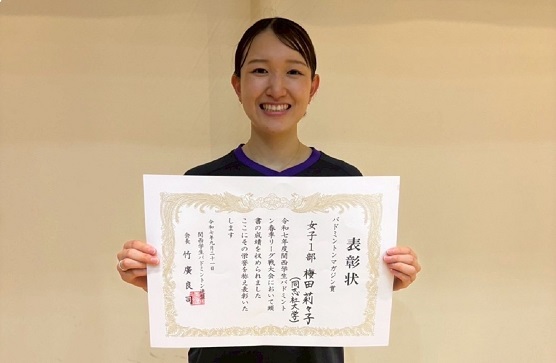 表彰状
バドミントンマガジン賞
女子1部 梅田 莉々子
(同志社大学)
令和七年度関西学生バドミント
ン春季リーグ戦大会において頭
書の成績を収められました
ここにその栄誉を称え表彰いた
します
令和七年九月二十一日
関西学生バドミントン連盟
会長 竹廣良司